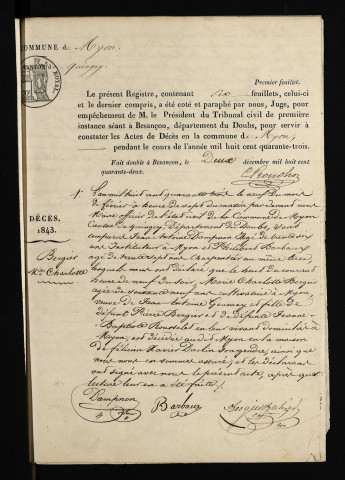 COMMUNE de Myon.
CANTON d Quingey
Premier feuillet.
Le présent Registre, contenant Six feuillets, celui-ci
et le dernier compris, a été coté et paraphé par nous, Juge, pour
empêchement de M. le Président du Tribunal civil de première
instance séant à Besançon, département du Doubs, pour servir à
constater les Actes de Décès en la commune de Myon,
pendant le cours de l'année mil huit cent quarante-trois.
Fait double à Besançon, le Deux décembre mil huit cent
quarante-deux.
DÉCÈS.
1843.
Bergier
Mie Charlotte
1. L'an mil huit cent quarante trois le neuf du mois
de février à heure de sept du matin par devant nous
Maire officier de l'état civil de la Commune de Myon
Canton de quingey, Département du Doubs, sont
comparus Jean Antoine Dampnon âgé de
ans Instituteur à Myon et Barbaux
agé de trente sept ans Charpentier au même lieu,
lesquels nous ont déclaré que le huit du courant
heure de neuf du soir, Marie Charlotte Bergier
agée de ans cultivatrice à Myon,
veuve de Jean Antoine et fille de
défunt Pierre Bergier et de Défunte Jeanne
Baptiste Rousselot en leur vivant domiciliés à
Myon, est décédée au dit Myon en la maison
de Xavier son gendre, ainsi que
nous nous en sommes assuré, et les déclarans
ont signé avec nous le présent acte, après que
lecture leur en a été faite.
Dampnon
Barbaux